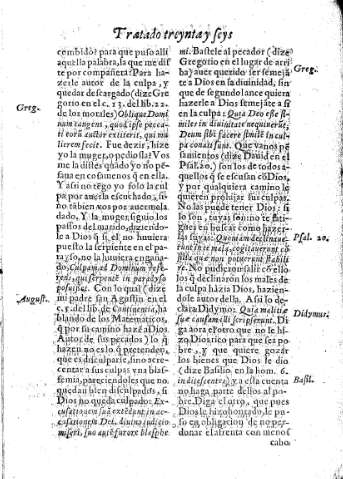 Tratado treynta y seys
combidò? para que puso alli
aquella palabra, la que me dis
te por compañera? Para ha-
zerle autor de la culpa, y
quedar descargado (dize Gre
gorio en el c. 23. del lib. 22.
de los morales) Oblique Domi
num tangens, quod ipse pecca-
ti author extiterit, qui mu
lierem fecit. Fue dezir, hize
yo la muger, o pedi osla? Vos
me la distes
na os comunes en ella.
Y assi no tēgo yo solo la cul
pa por auerle escuchado, si
no tābien vos por auermela
dado, Y la muger, siguio los
passos del marido, diziendo
le a Dios q̄ si el no huuiera
puesto la serpiente en el pa-
rayso, no la huuiera engaña
do. Culpam ad Dominum refe-
rens, qui serpentē in paradyso
posuisset. Con lo qual (dize
mi padre san Agustin en el
c. 5. del lib. de Continentia, ha
blando de los Matematicos,
q̄ por su camino hazē a Dios
Autor de sus pecados) lo q̄
hazen no es lo q̄ pretenden,
que es disculparse, sino acre-
centar a sus culpas vna blas-
femia, pareciendoles que no
quedan bien disculpados, si
Dios no queda culpado: Ex-
cusationem suā extēdunt in ac-
cusationem Dei, diuino iudicio
miseri, suo autē furore blasphe
mi. Bastele al pecador (dize
Gregorio en el lugar de arri
ba) auer querido ser semejā
te a Dios en su diuinidad, sin
que de segundo lance quiera
hazerle a Dios semejāte a si
en la culpa: Quia Deo esse si-
miles in diuinitate nequiuerūt,
Deum sibi facere similē in cul-
pa conati sunt. Que vanos pē
samientos (dize Dauid en el
Psal. 20.) son los de todos a-
quellos q̄ se escusan cō Dios,
y por qualquiera camino le
quieren prohijar sus culpas.
No las puede tener Dios: si
lo son, tuyas son; no te fati-
gues en buscar como hazer-
las suyas: Quoniam declinaue-
runt in te mala, cogitauerunt cō
silia que non potuerunt stabili
re. No pudieron salir cō ello
los q̄ declinaron los males de
la culpa hāzia Dios, hazien-
dole autor della. Assi lo de-
clara Didymo: Quia malitiā
suæ causam illi scripserunt. Di
ga aora el otro que no le hi-
zo Dios rico para que sea po
bre, y que quiere gozar
los bienes que Dios le dio
(dize Basilio, en la hom. 6.
in ditescentes) y a essa cuenta
no haga parte dellos al po-
bre. Diga el otro, que pues
Dios le hizo honrado, le pu-
so en obligacion de no per-
donar el afrenta con menos
cabo
Greg.
August.
Greg.
Psal. 20.
Didymus.
Basil.